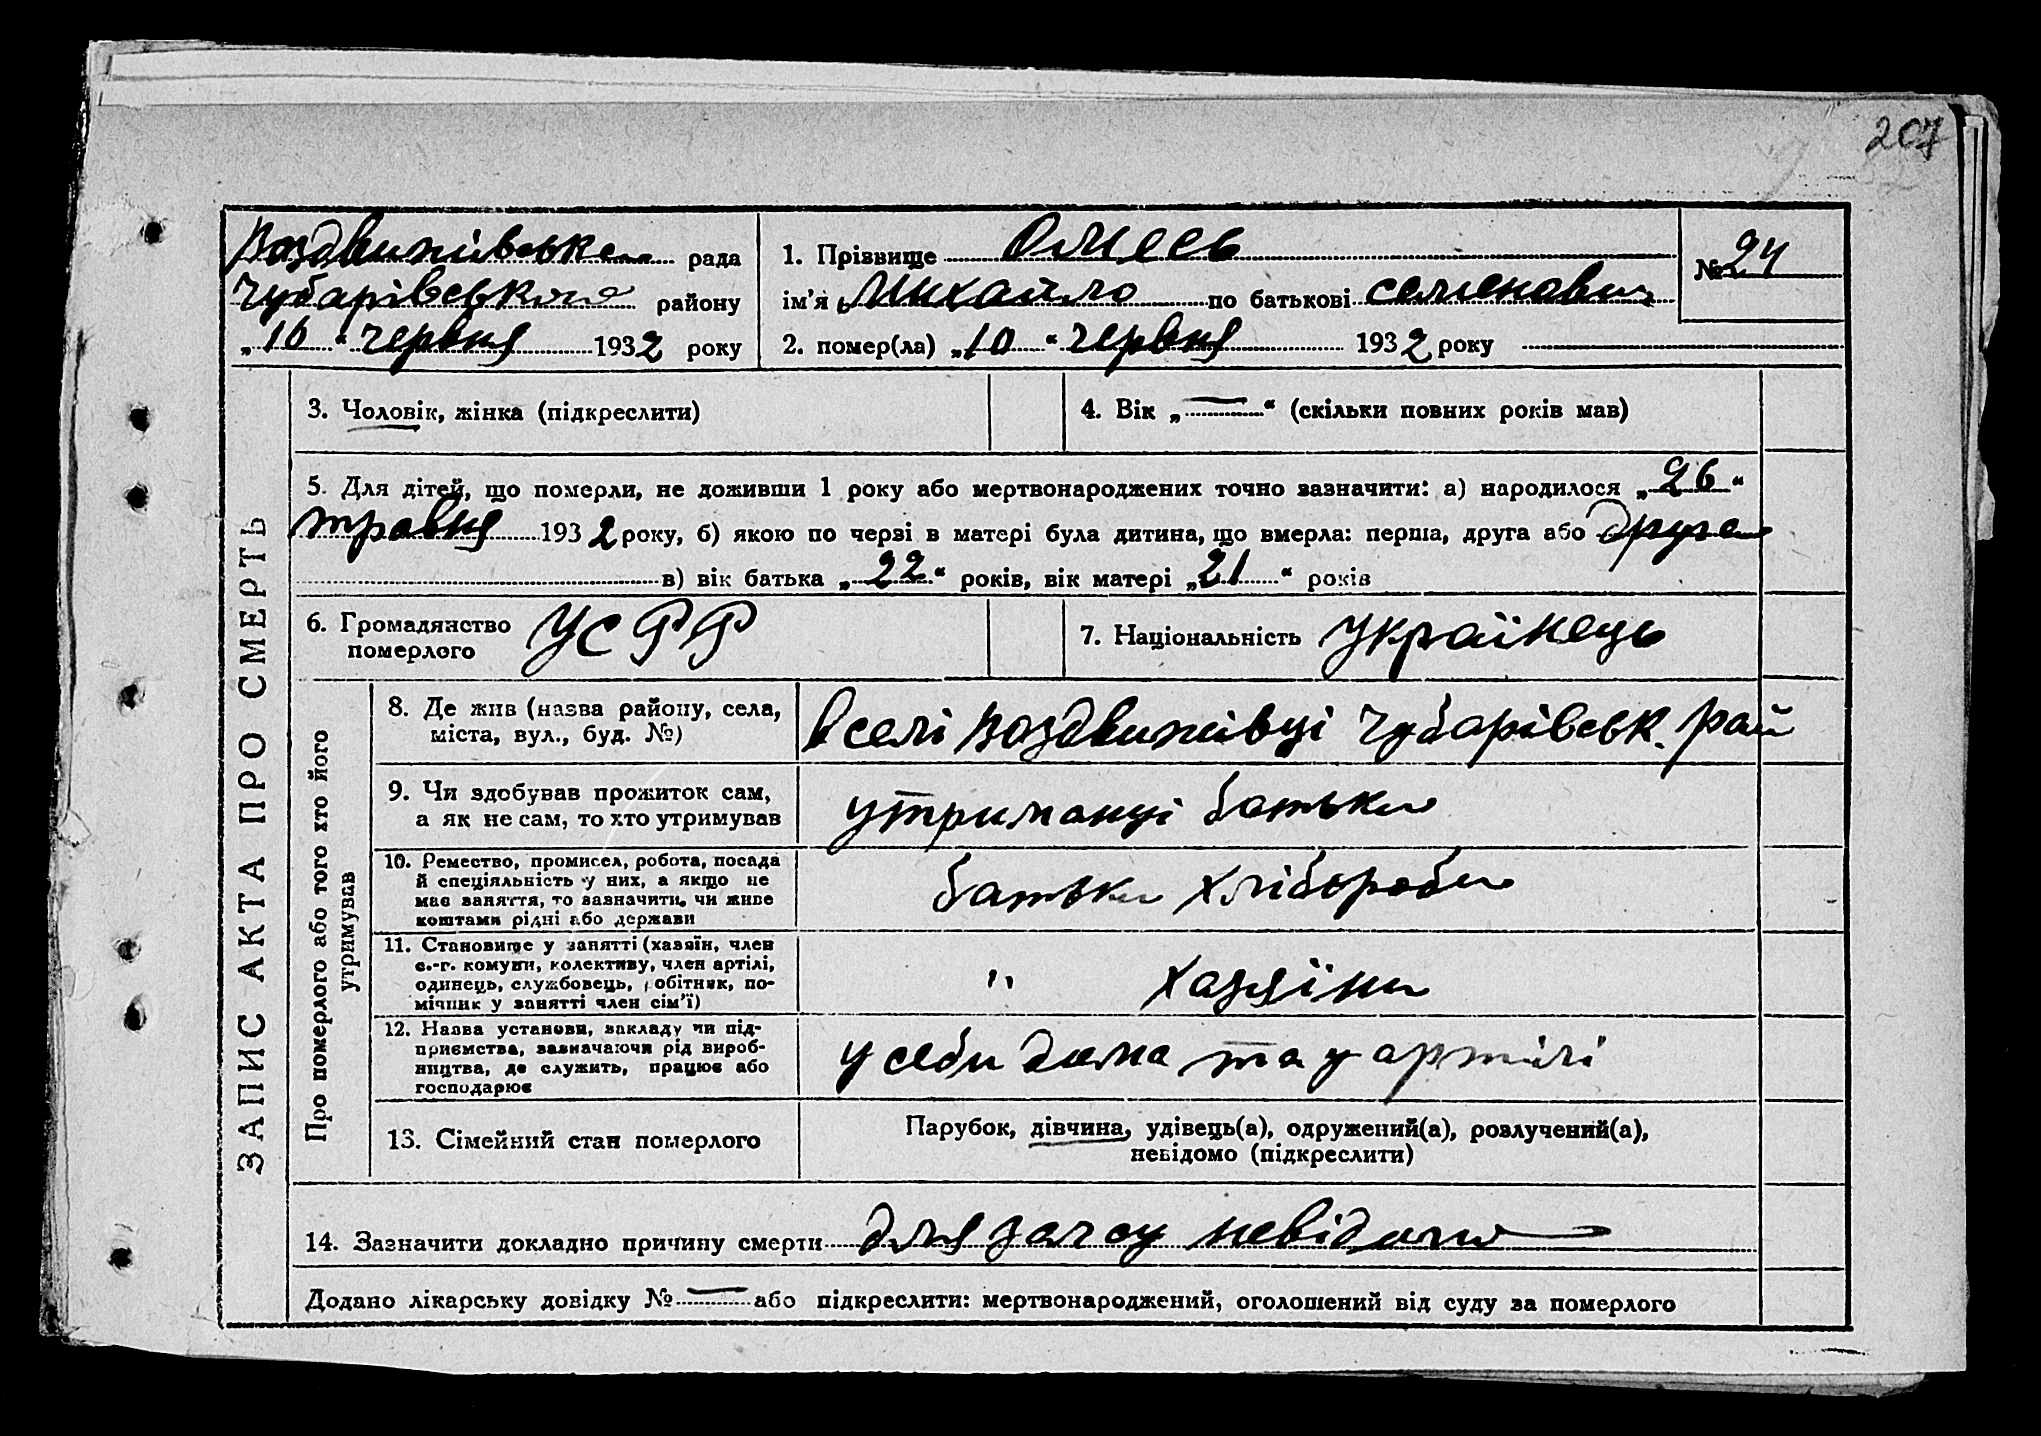 207
Воздвижівська рада
Чубарівського району
„16“ червня 1932 року
1. Прізвище Омесь
ім'я Михайло по батькові семенович
2. помер(ла) „10“ червня 1932 року
№ 24
ЗАПИС АКТА ПРО СМЕРТЬ
3. Чоловік, жінка (підкреслити)
4. Вік „—“ (скільки повних років мав)
5. Для дітей, що померли, не доживши 1 року або мертвонароджених точно зазначити: а) народилося „26“
травня 1932 року, б) якою по черзі в матері була дитина, що вмерла: перша, друга або друга
в) вік батька „22“ років, вік матері „21“ років
6. Громадянство
померлого УСРР
7. Національність Українець
Про померлого або того хто його
утримував
8. Де жив (назва району, села,
міста, вул., буд. №)
в селі Воздвижівці Чубарівськ. рай
9. Чи здобував прожиток сам,
а як не сам, то хто утримував
утриманці батьки
10. Ремество, промисел, робота, посада
й спеціяльність у них, а якщо не
має заняття, то зазначити, чи живе
коштами рідні або держави
батьки хлібороби
11. Становище у занятті (хазяїн, член
с.-г. комуни, колективу, член артілі,
одинець, службовець, робітник, по-
мічник у занятті член сім'ї)
" хазяїни
12. Назва установи, закладу чи під-
приємства, зазначаючи рід вироб-
ництва, де служить, працює або
господарює
у себи дома та у артілі
13. Сімейний стан померлого
Парубок, дівчина, удівець(а), одружений(а), розлучений(а),
невідомо (підкреслити)
14. Зазначити докладно причину смерти для загсу невідомо
Додано лікарську довідку № — або підкреслити: мертвонароджений, оголошений від суду за померлого